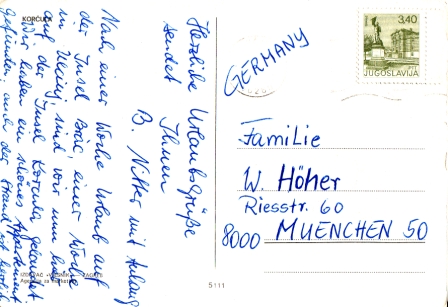 KORČULA
Nach einer Woche Urlaub auf
der Insel Brač, einer Woche
in Ulcinj, sind wir nun hier
auf der Insel Korcula gelandet
Wir haben ein schönes Appartement
gefunden, und der Strand ist herrlich
Herzliche Urlaubsgrüße
sendet Ihnen
B. Nitter mit Anhang
GERMANY
3,40
JUGOSLAVIJA
Familie
W. Höher
Riesstr. 60
8000 MUENCHEN 50
5111